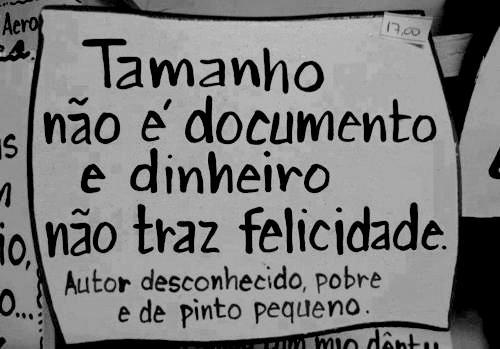 Aero
17,00
Tamanho
não é documento
e dinheiro
não traz felicidade.
Autor desconhecido, pobre
e de pinto pequeno.